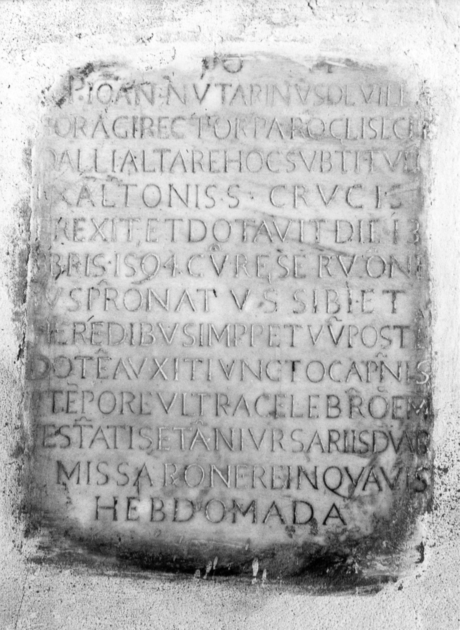 P·IOAN·NVTARINVS DE VILL
ORAGI RECTOR PAROCLIS
ALLI ALTARE HOC SVB TITVL
XALTONIS S· CRVCIS
REXIT, ET DOTAVIT DIE 13
BRIS·1594·CVRE, SERVON
VSPR̃ONATVS SIBI·ET
EREDIBVS IMPPETVV̄ POST
DOTĒ AVXIT IVNCTO CAPÑIS
TĒPORE VLTRA CELEBR̃OĒM
ESTATIS ET ANIVRSARIIS DVAR
MISSARON ERE IN QVAVIS
HEBDOMADA